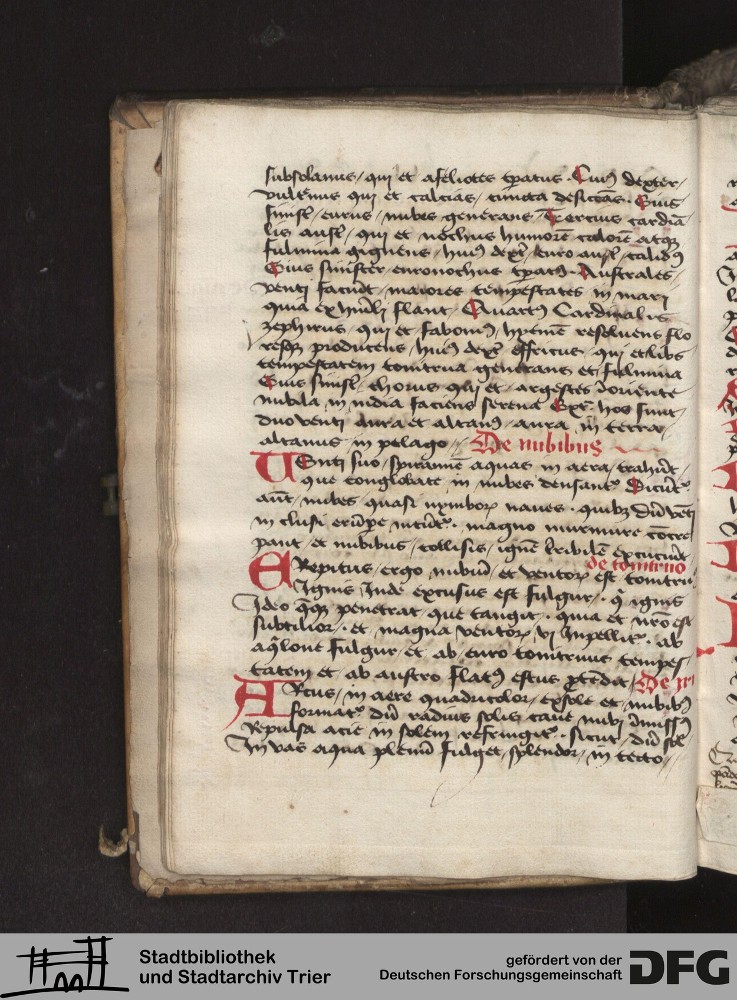 subsolanus / qui et afeliotes
dexter /
vulturnus qui et calcias / cuncta desiccās . Eius
sinist / eurus / nubes generans / Tercius cardīa
lis aust / qui et nothus humorē calorē atqꝫ
fulmina gignens / huiꝰ dext / euro aust / calidꝰ
Eius sinister euronothus . Australes /
venti faciūt / maiores tempestates in mari
quia ex humili flant / Quartꝰ Cardinalis
zephirus / qui et faboniꝰ / hyemē resoluens flo
resqꝫ producens / huiꝰ dext affricus / qui et libs
tempestatem tonitrua generans et fulmina
Eius sinist / chorus qui et / argestes ī oriente
nubila in india faciens serena Ext hos sunt
duo venti aura et altanꝰ / aura in terra
altanus in pelago // De nubibus
VEnti suo / spiramine aquas in aera / trahūt /
que conglobate in nubes densantur Dicūtur
aūt / nubes quasi nymborꝝ naues . quibꝫ dū vēti
in clusi erūpe nitūtur . magno murmure cōcre
pant / et nubibus / collisis / ignē terribilē excuciūt
de tonitruo
CRepitus / ergo nubiū / et ventorꝝ est tonitru
Ignis Inde excusus est fulgur / . qui ignis
Ideo penetrat / que tangit . quia et nr̄o est
subtilior / . et magna ventorꝝ vi Inpellitur . ab
aqͥlone fulgur / et ab / euro tonitruus tempes /
tatem et ab austro flatꝰ estus ꝓtēdit / De yri
ARcus / in aere quadricolor / ex sole et nubibꝰ
formatur dū radius solis caue nubi īmissꝰ
Repulsa acie in solem refringitur . sicut / dū sol
In vas aqua plenū fulget / splendor / in tecto
Stadtbibliothek
und Stadtarchiv Trier
gefördert von der
Deutschen Forschungsgemeinschaft
DFG